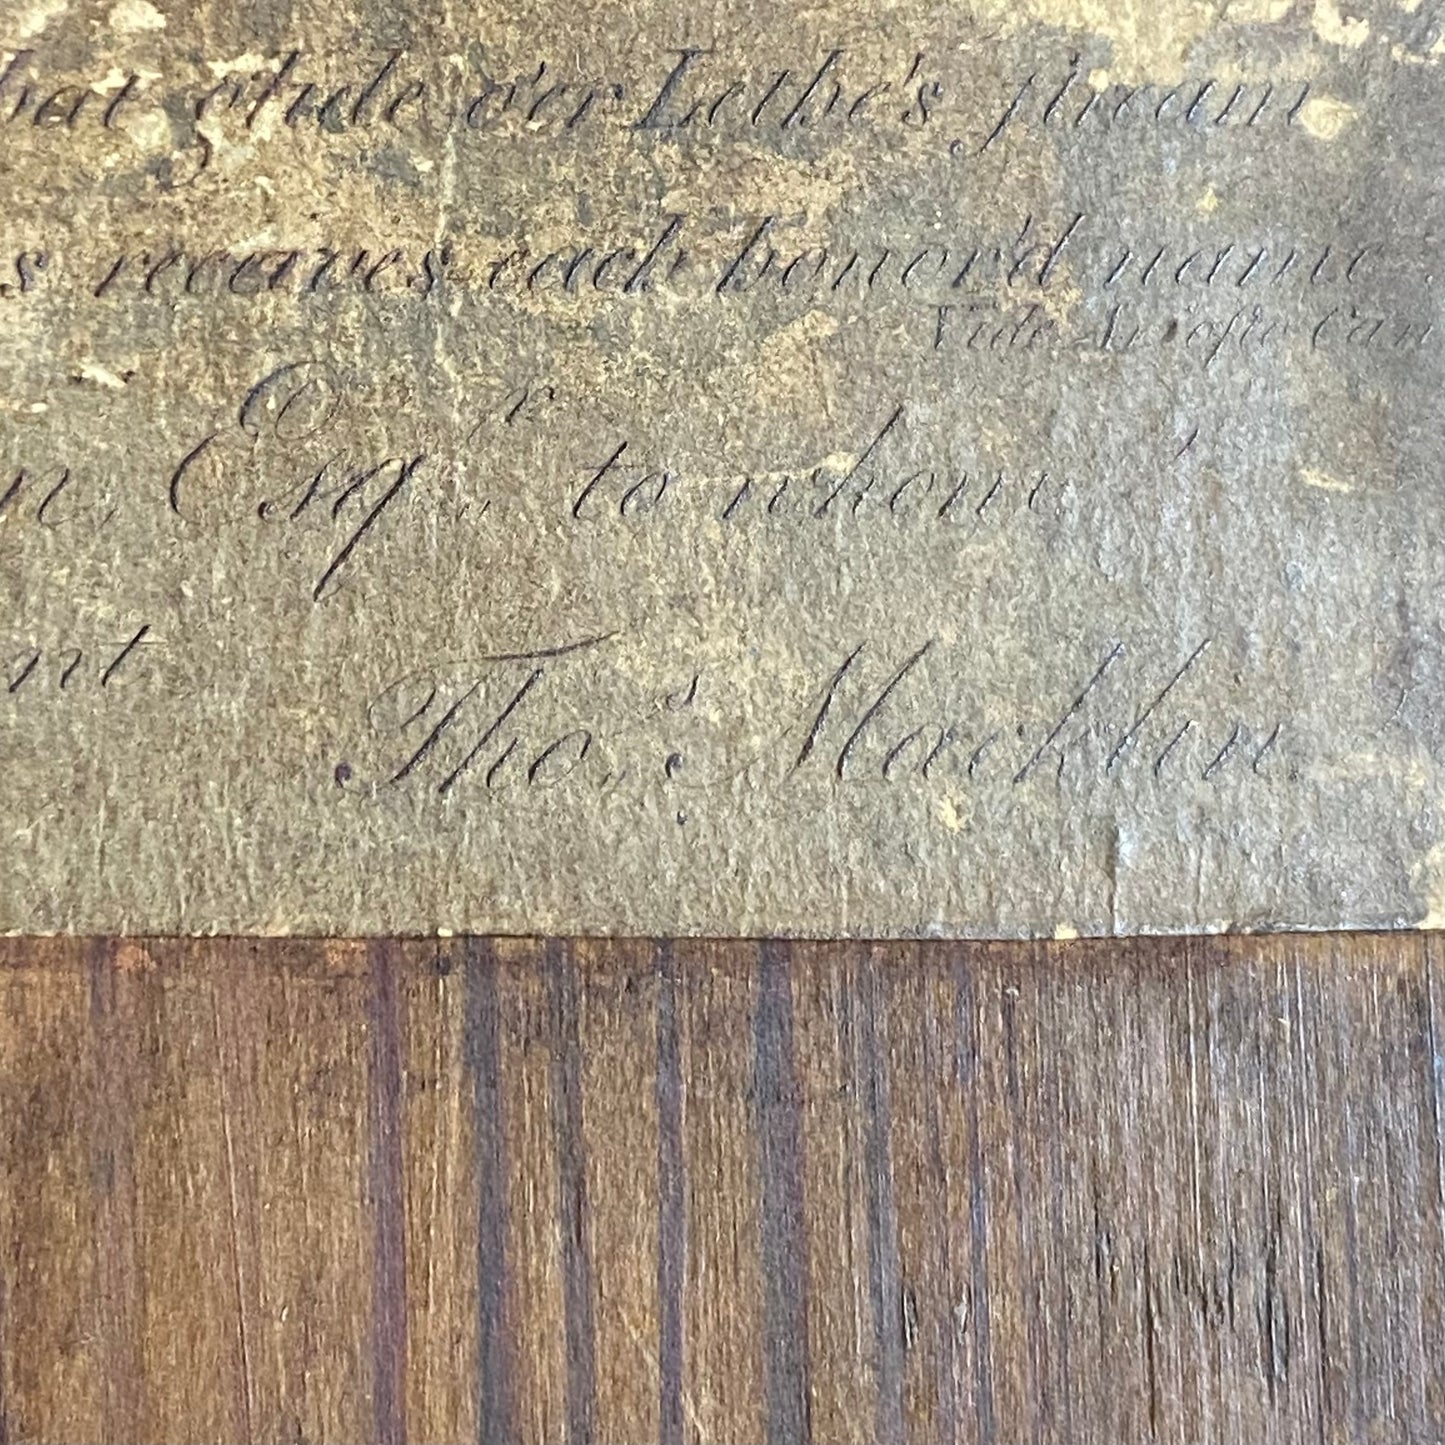 hat glide o'er Lethe's stream
s receives each honor'd name
Vide Ariosto Can
n, Esqr. to whom
nt Thos. Macklin